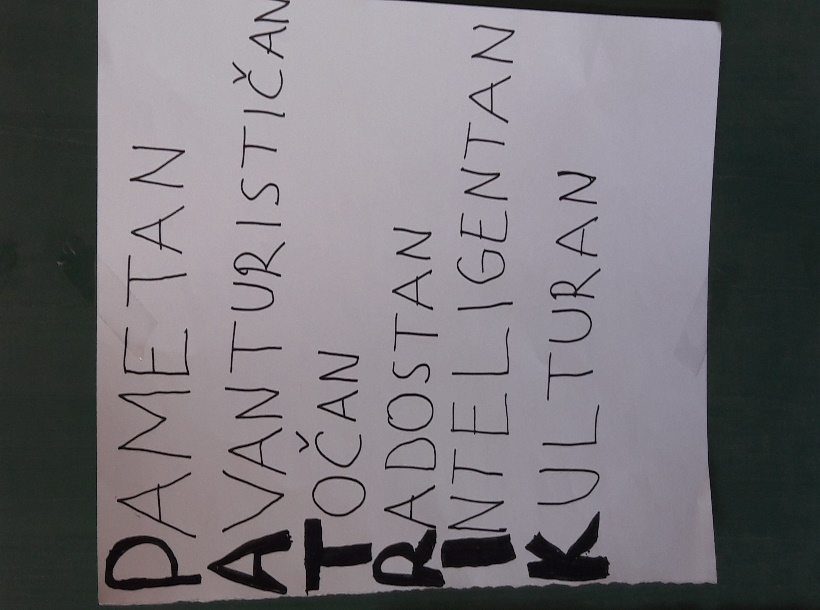 PAMETAN
AVANTURISTIČAN
TOČAN
RADOSTAN
INTELIGENTAN
KULTURAN